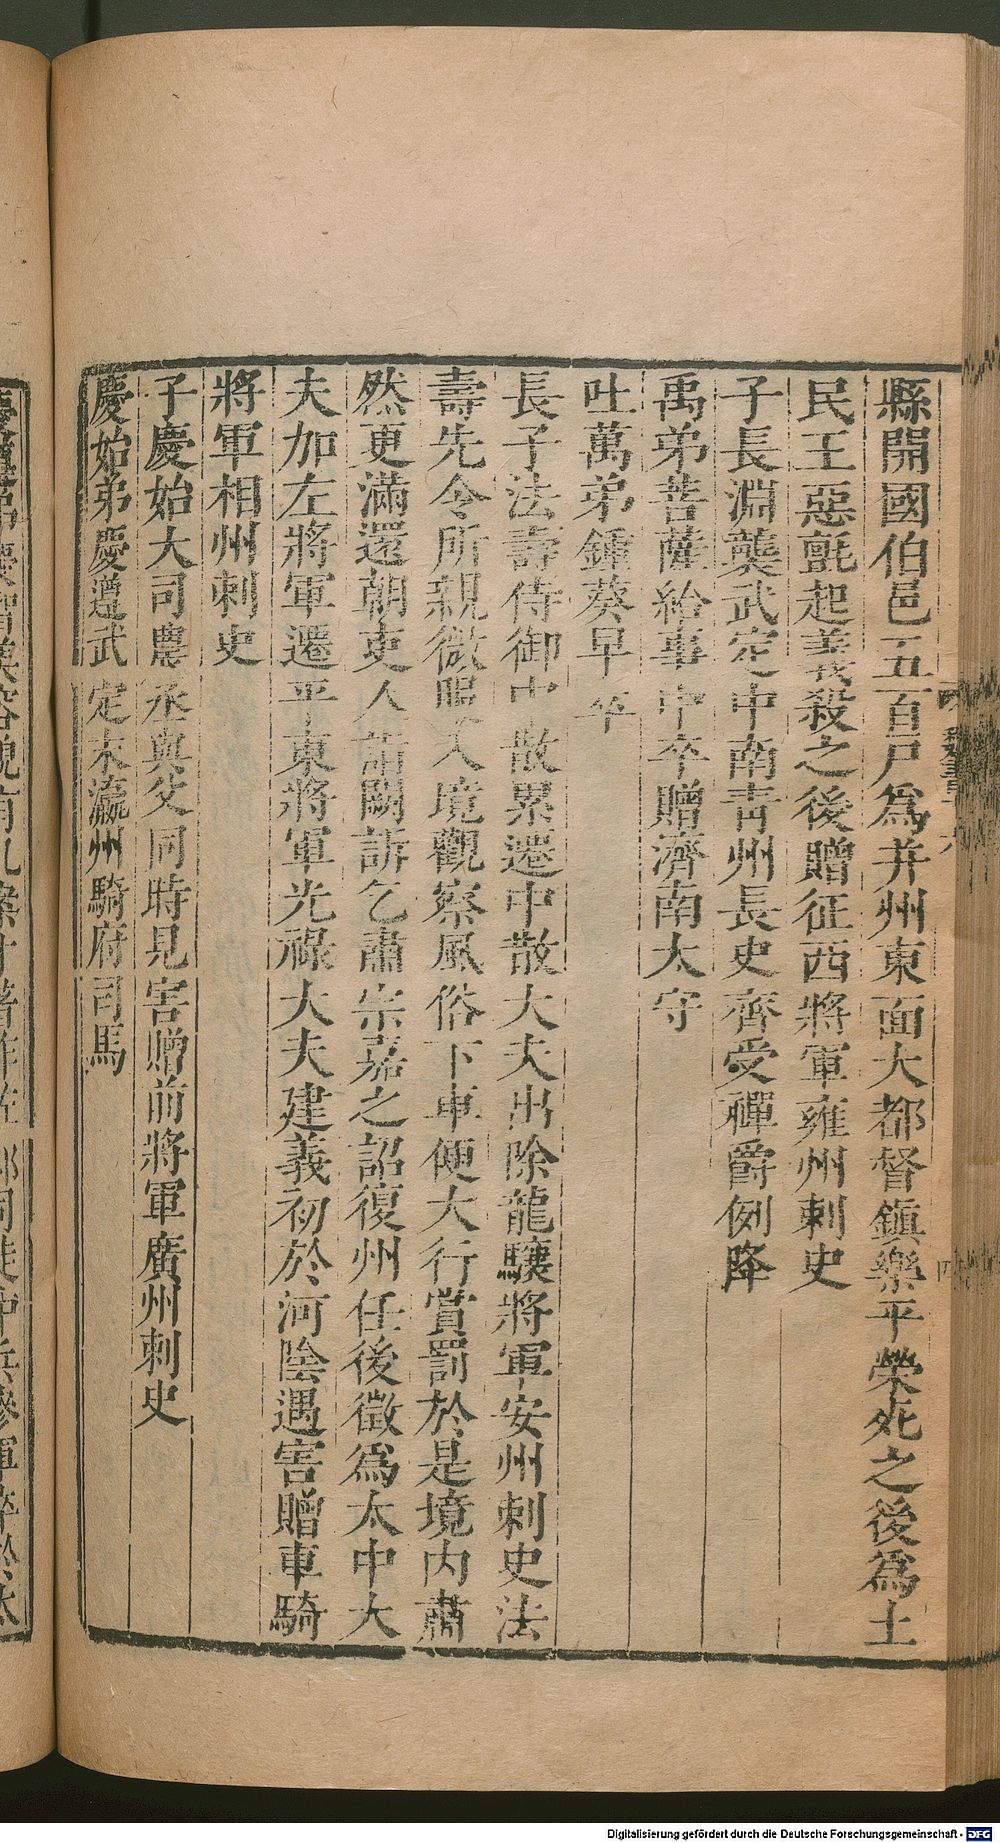 縣開國伯邑五百戸爲并州東面大都督鎮樂平榮死之後爲土
民王惡氈起義殺之後贈征西將軍雍州刺史
子長淵襲武定中南青州長史齊受禪爵例降
禹弟菩薩給事中卒贈濟南太守
吐萬弟鍾葵早卒
長子法壽侍御中散累遷中散大夫出除龍驤將軍安州刺史法
壽先令所親微服入境觀察風俗下車便大行賞罰於是境内肅
然更滿還朝吏人詣闕訴乞肅宗嘉之詔復州任後徵爲太中大
夫加左將軍遷平東將軍光祿大夫建義初於河陰遇害贈車騎
將軍相州刺史
子慶始大司農丞與父同時見害贈前將軍廣州刺史
慶始弟慶遵武定末瀛州騎府司馬
Digitalisierung gefördert durch die Deutsche Forschungsgemeinschaft - DFG